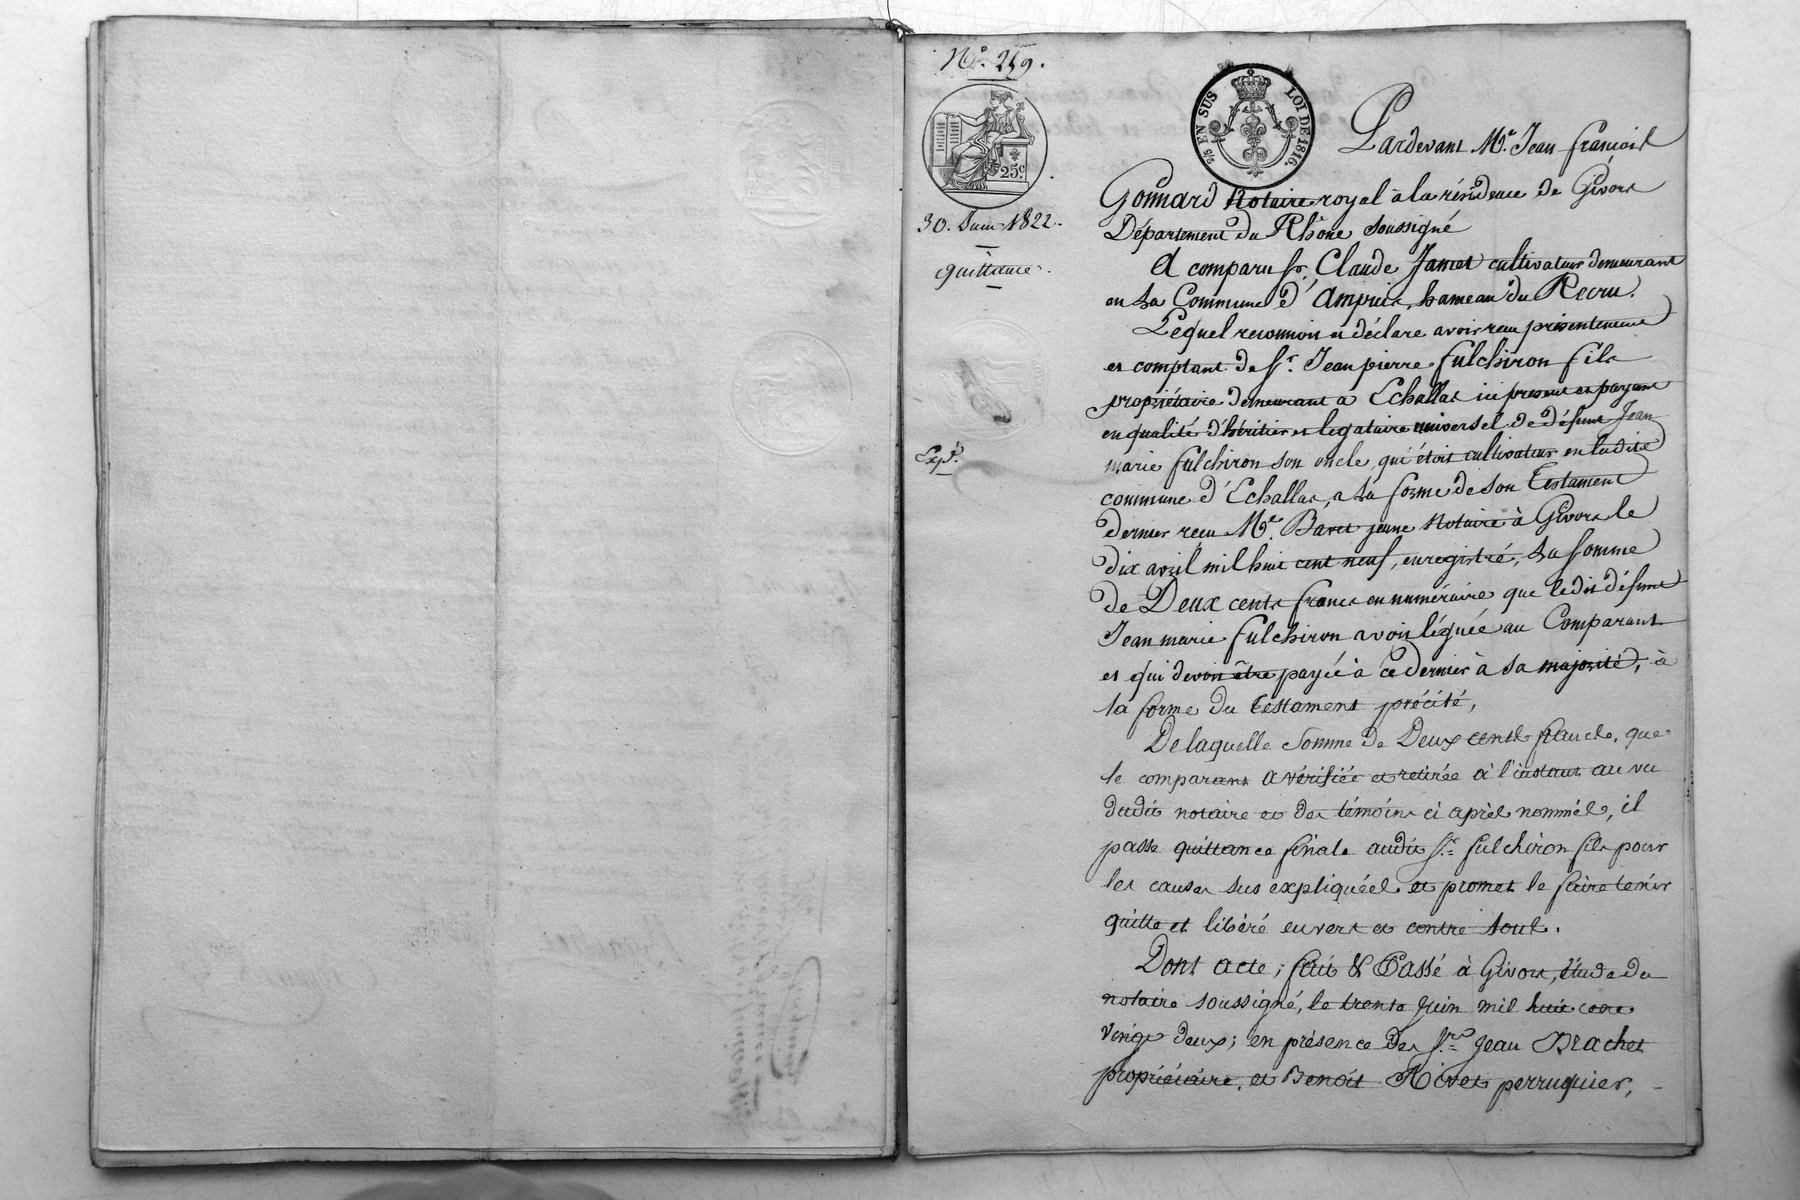 N.° 259.
5/5 EN SUS LOI DE 1816.
25c.
30. Juin 1822.
quittance.
Exp.é
Pardevant M.e Jean françois
Gonnard Notaire royal à la résidence de Givors
Département du Rhône soussigné
A comparu Sr. Claude Jamet cultivateur demeurant
en la Commune d'Ampuis, hameau du Recru.
Lequel reconnoit et déclare avoir reçu présentement
et comptant de Sr. Jean pierre fulchiron fils
propriétaire demeurant à Echallas ici présent et payant
en qualité d'héritier et légataire universel de défunt Jean
marie fulchiron son oncle, qui étoit cultivateur en ladite
commune d'Echallas, a la forme de son Testament
dernier reçu M.e Baret jeune Notaire à Givors le
dix avril mil huit cent neuf, enregistré, la somme
de Deux cents francs en numéraire que ledit défunt
Jean marie fulchiron avoit léguée au Comparant
et qui devoit être payée à ce dernier à sa majorité, à
la forme du testament précité,
De laquelle Somme de Deux cents francs, que
le comparant a vérifiée et retirée à l'instant au vu
dudit notaire et des témoins ci après nommés, il
passe quittance finale audit Sr. fulchiron fils pour
les causes sus expliquées et promet le faire tenir
quitte et libéré envers et contre tous.
Dont acte; fait & Passé à Givors, étude du
notaire soussigné, le trente Juin mil huit cent
vingt deux; en présence des Srs. Jean Brachet
propriétaire, et Benoit Rivet perruquier,